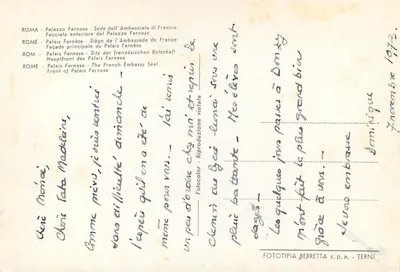 ROMA - Palazzo Farnese - Sede dell'Ambasciata di Francia
Facciata anteriore del Palazzo Farnese
ROME - Palais Farnèse - Siège de l'Ambassade de France
Façade principale du Palais Farnèse
ROM - Palais Farnese - Sitz der französischen Botschaft
Hauptfront des Palais Farnese
ROME - Palais Farnese - The French Embassy Seat
Front of Palais Farnese
Fotocolor - Riproduzione vietata
FOTOTIPIA BERRETTA s.p.a. - TERNI
7 novembre 1973.
Chère Tata Madeleine,
Comme prévu, je suis rentrée
sans difficulté dimanche -
J'espère qu'il en a été de
même pour vous. - J'ai remis
un peu d'ordre chez moi et repris le
chemin du lycée lundi sous une
pluie battante - Mes élèves sont
sages -
Les quelques jours passés à
m'ont fait le plus grand bien
grâce à vous. -
Je vous embrasse
Dominique